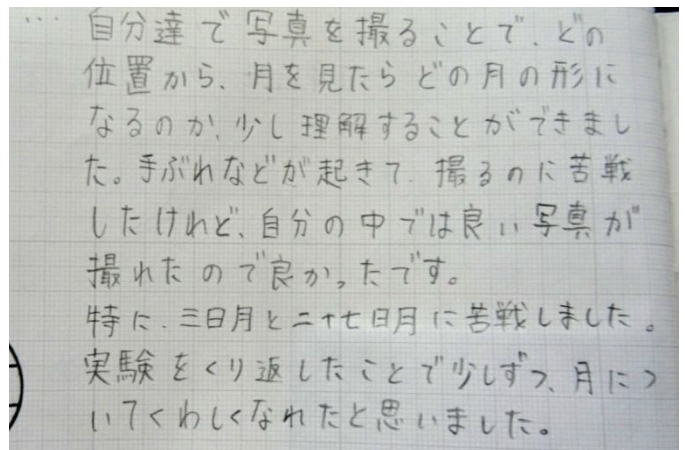 … 自分達で写真を撮ることで、どの
位置から、月を見たらどの月の形に
なるのか、少し理解することができまし
た。手ぶれなどが起きて、撮るのに苦戦
したけれど、自分の中では良い写真が
撮れたので良かったです。
特に、三日月と二十七日月に苦戦しました。
実験をくり返したことで少しずつ、月につ
いてくわしくなれたと思いました。